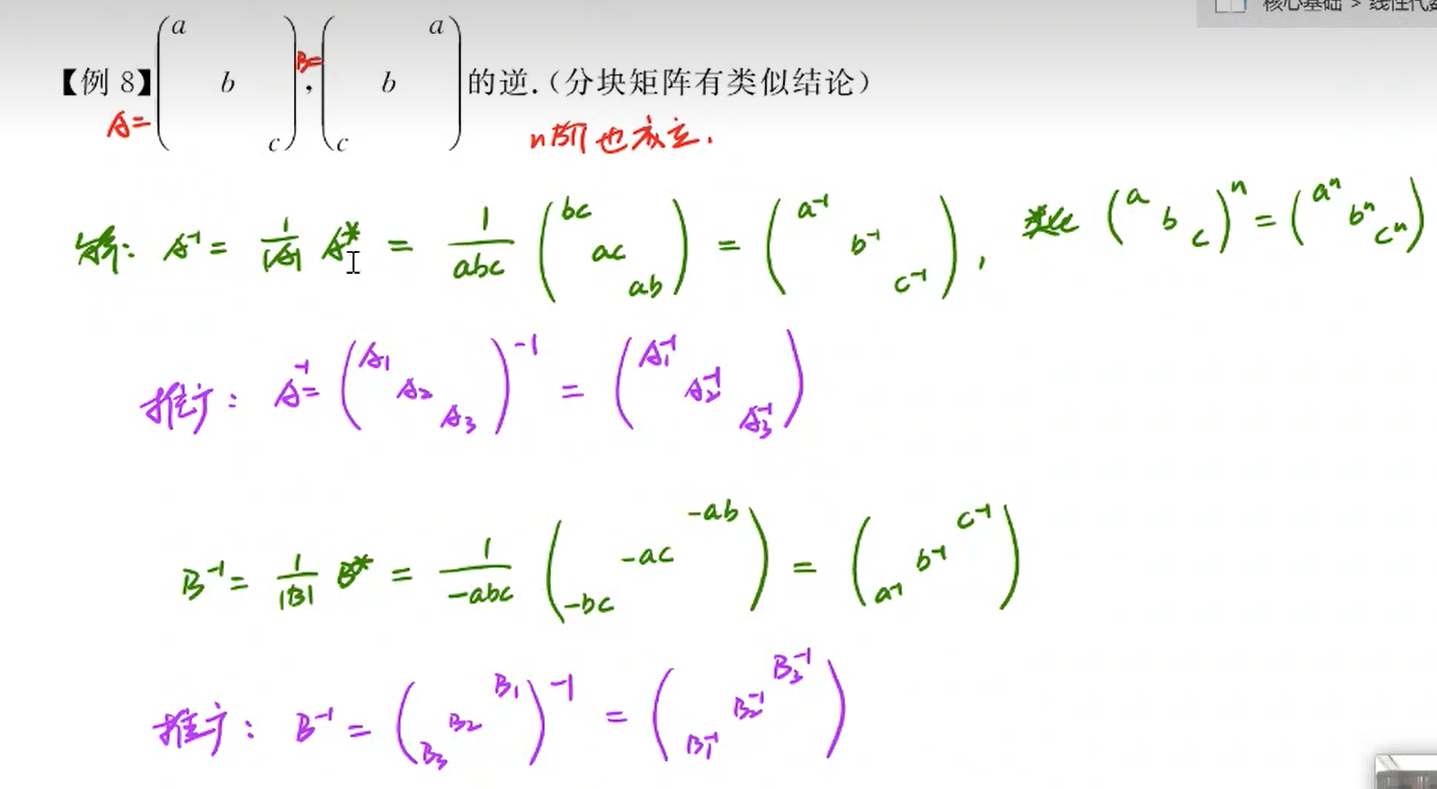 核心基础 > 线性代数
【例 8】A= (a b c), B= (a b c) 的逆.(分块矩阵有类似结论)
n阶也成立.
解: A⁻¹ = 1/|A| A* = 1/abc (bc ac ab) = (a⁻¹ b⁻¹ c⁻¹), 类比 (a b c)ⁿ = (aⁿ bⁿ cⁿ)
推广: A⁻¹= (A₁ A₂ A₃)⁻¹ = (A₁⁻¹ A₂⁻¹ A₃⁻¹)
B⁻¹ = 1/|B| B* = 1/-abc (-ab -ac -bc) = (c⁻¹ b⁻¹ a⁻¹)
推广: B⁻¹ = (B₁ B₂ B₃)⁻¹ = (B₃⁻¹ B₂⁻¹ B₁⁻¹)